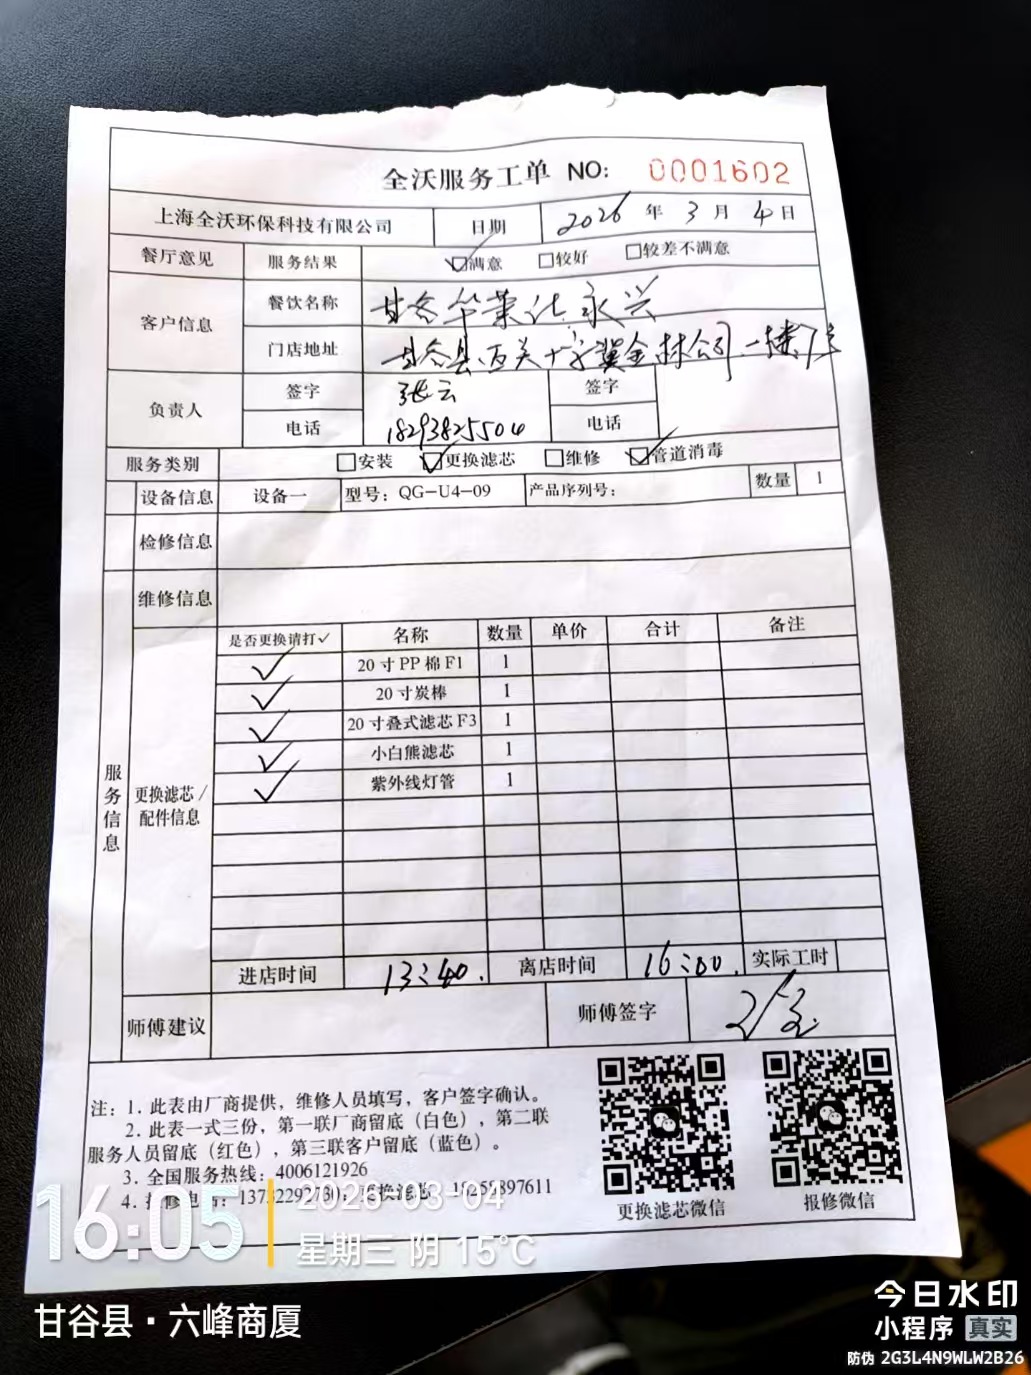 全沃服务工单 NO: 0001602
上海全沃环保科技有限公司 日期 2026 年 3 月 4 日
餐厅意见 服务结果 ☑满意 □较好 □较差不满意
客户信息 餐饮名称 甘谷华莱仕永兴
门店地址 甘谷县西关十字冀金林公司一楼
负责人 签字 张云 签字
电话 18293825504 电话
服务类别 □安装 ☑更换滤芯 □维修 ☑管道消毒
设备信息 设备一 型号: QG-U4-09 产品序列号: 数量 1
检修信息
维修信息
服务信息
更换滤芯/配件信息
是否更换请打✓ 名称 数量 单价 合计 备注
✓ 20寸PP棉F1 1
✓ 20寸炭棒 1
✓ 20寸叠式滤芯F3 1
✓ 小白熊滤芯 1
✓ 紫外线灯管 1
进店时间 13:40. 离店时间 16:00. 实际工时
师傅建议 师傅签字
注: 1. 此表由厂商提供，维修人员填写，客户签字确认。
2. 此表一式三份，第一联厂商留底（白色），第二联
服务人员留底（红色），第三联客户留底（蓝色）。
3. 全国服务热线: 4006121926
4. 报修电话: 更换滤芯
更换滤芯微信 报修微信
16:05 2026-03-04
星期三 阴 15℃
甘谷县·六峰商厦
今日水印
小程序 真实
防伪 2G3L4N9WLW2B26